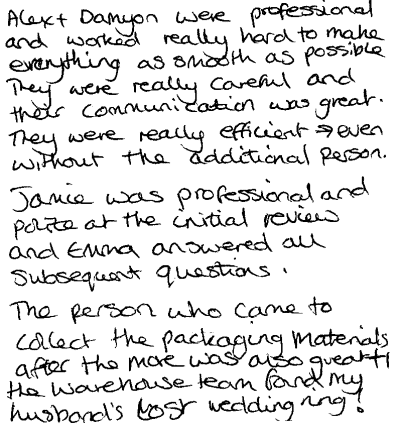 Alex + Damyon were professional
and worked really hard to make
everything as smooth as possible
They were really careful and
their communication was great.
They were really efficient → even
without the additional person.
Jamie was professional and
polite at the initial review
and Emma answered all
subsequent questions.
The person who came to
collect the packaging materials
after the move was also great +
the warehouse team found my
husband's lost wedding ring!